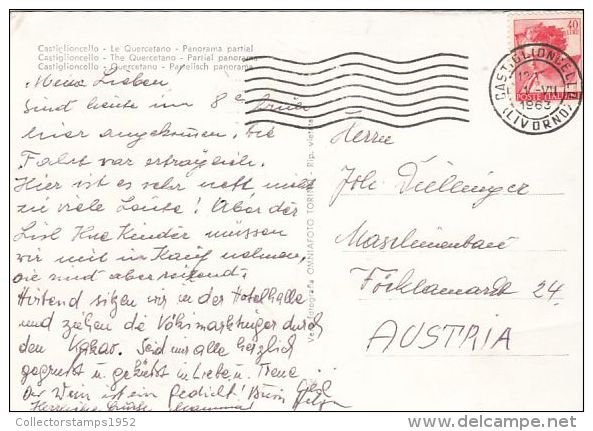 Castiglioncello - Le Quercetano - Panorama partiel
Castiglioncello - The Quercetano - Partial panorama
Castiglioncello - Quercetano - Parteilisch panorama
Meine Lieben
Sind heute um 8
hier angekommen, die
Fahrt war erträglich.
Hier ist es sehr nett nicht
zu viele Leute! Aber der
Lisl Kinder müssen
wir mit in Kauf nehmen,
die sind aber reizend.
sitzen wir in der Hotelhalle
und ziehen die durch
den Kakao. Seid mir alle herzlich
gegrüsst u. geküsst in Liebe u. Treue
Der Wein ist ein Gedicht!
Herrn
Joh. Dullinger
Maschinenbau
24
AUSTRIA
Vera fotografia OMNIAFOTO TORINO - Rip. vietata
40
LIRE
POSTE ITALIANE
CASTIGLIONCELLO
-VII
1963
(LIVORNO)
Collectorstamps1952
delcampe.net